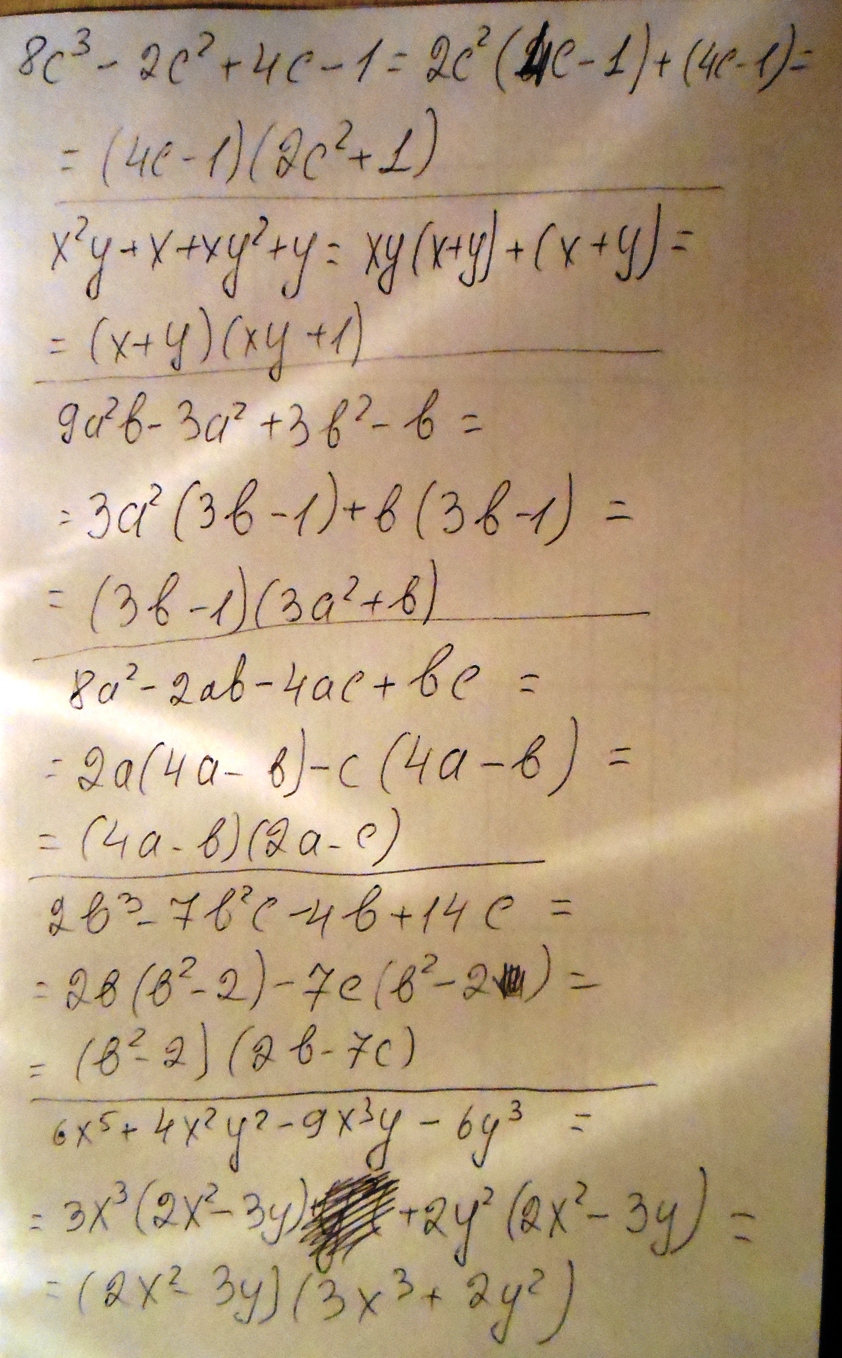 8c³ - 2c² + 4c - 1 = 2c²(4c - 1) + (4c - 1) =
= (4c - 1)(2c² + 1)
x²y + x + xy² + y = xy(x+y) + (x + y) =
= (x + y)(xy + 1)
9a²b - 3a² + 3b² - b =
= 3a²(3b - 1) + b(3b - 1) =
= (3b - 1)(3a² + b)
8a² - 2ab - 4ac + bc =
= 2a(4a - b) - c(4a - b) =
= (4a - b)(2a - c)
2b³ - 7b²c - 4b + 14c =
= 2b(b² - 2) - 7c(b² - 2) =
= (b² - 2)(2b - 7c)
6x⁵ + 4x²y² - 9x³y - 6y³ =
= 3x³(2x² - 3y) + 2y²(2x² - 3y) =
= (2x² - 3y)(3x³ + 2y²)